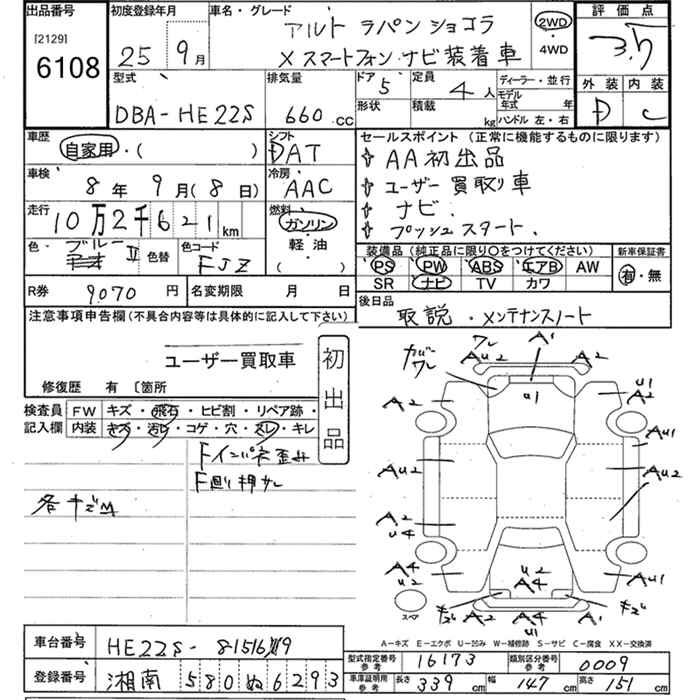 出品番号 初度登録年月 車名・グレード 評価点
[2129] アルト ラパン ショコラ 2WD 3.5
6108 25年 9月 X スマートフォン ナビ装着車 4WD
型式 排気量 ドア 5 定員 4人 ディーラー・並行 外装 内装
DBA-HE22S 660cc 形状 積載 kg モデル年式 年 D C
ハンドル 左・右
車歴 シフト セールスポイント (正常に機能するものに限ります)
自家用・( ) DAT AA初出品
車検 冷房 ユーザー買取り車
8年 9月(8日) AAC ナビ.
走行 燃料 プッシュスタート.
10万2千621km ガソリン
色・ ブルーII 色替 色コード 軽油 装備品 (純正品に限り○をつけてください) 新車保証書
FJZ ( ) PS PW ABS エアB AW 有・無
SR ナビ TV カワ
R券 9070円 名変期限 月 日 後日品
注意事項申告欄(不具合内容等は具体的に記入して下さい) 取説・メンテナンスノート
ユーザー買取車 初出品
修復歴 有〔箇所
検査員 FW キズ・飛石・ヒビ割・リペア跡・
記入欄 内装 キズ・汚レ・コゲ・穴・スレ・キレ
Fインパネ歪み
F廻り押サレ
各キズM
カバー ワレ ワレ AU2 A' A2
A2 u1 u1 A2
AU1
AU2 AU2
A2 u4
A4 u2 u2 A4 AU1
スペア キズ A2 A4 A2 キズ
u1
A-キズ E-エクボ U-凹み W-補修跡 S-サビ C-腐食 XX-交換済
車台番号 HE22S-
型式指定番号 参考 16173 類別区分番号 参考 0009
登録番号 湘南 580 ぬ 6293
車庫証明用 参考 長さ 339cm 幅 147cm 高さ 151cm